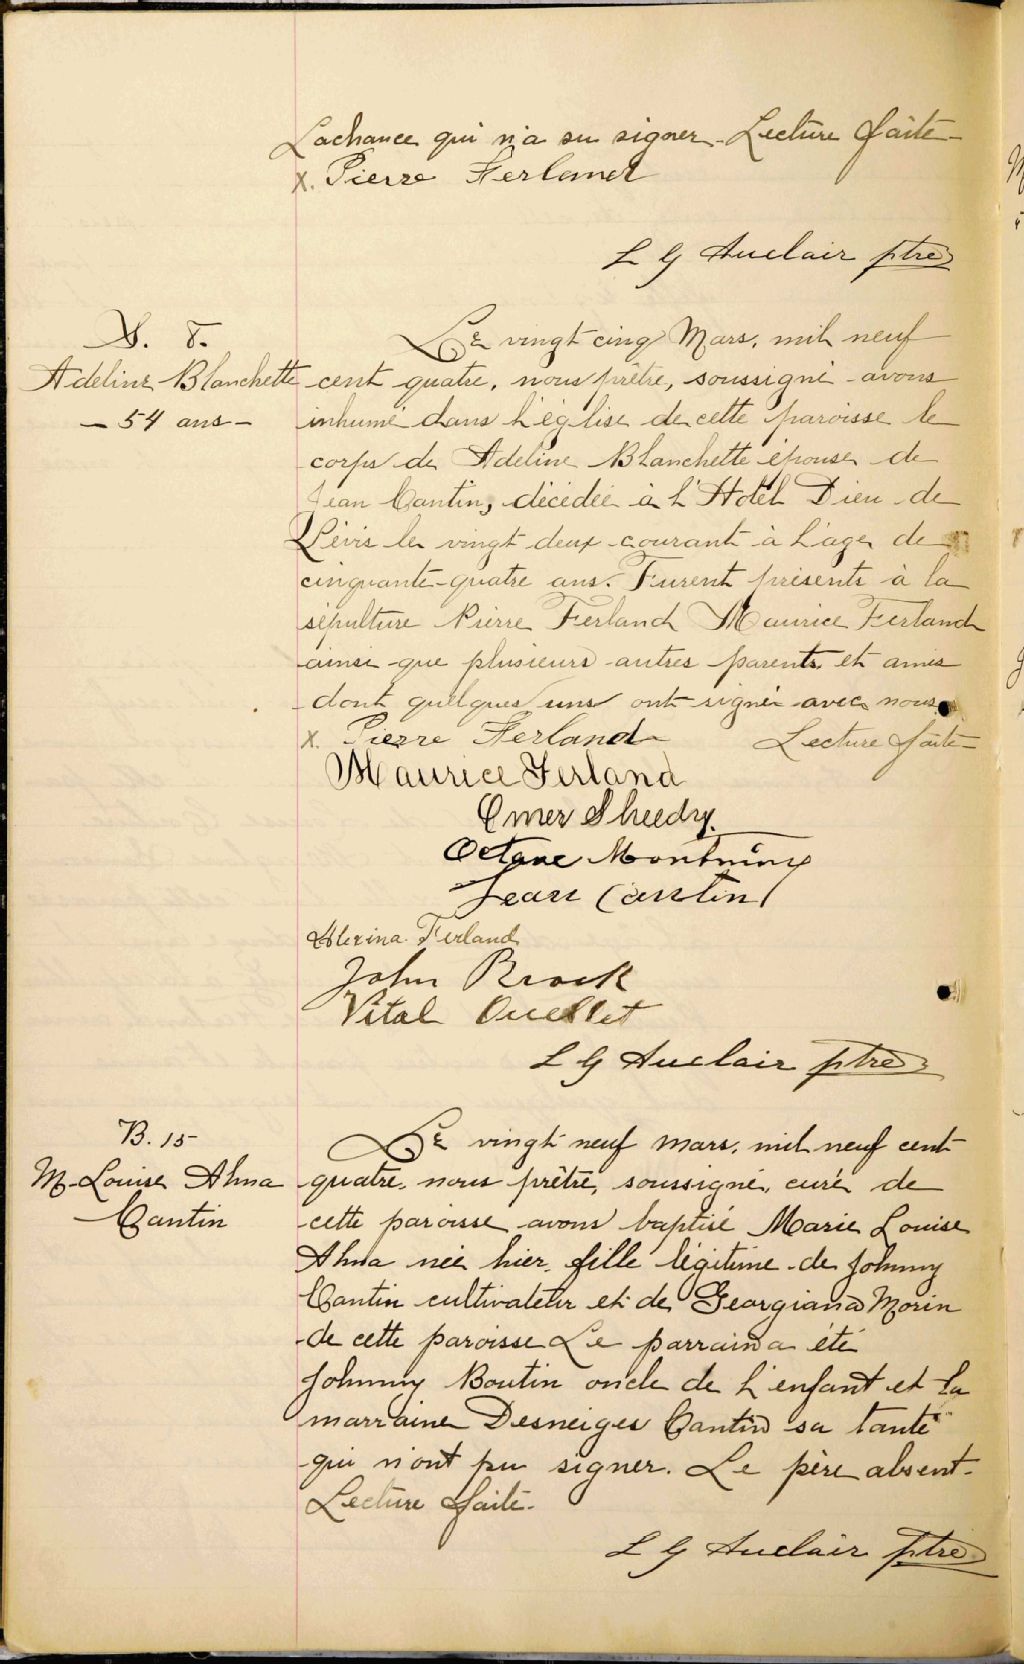 Lachance qui n'a su signer - Lecture faite -
x. Pierre Ferland
L G Auclair ptre
S. 8.
Adeline Blanchette
- 54 ans -
Le vingt cinq Mars, mil neuf
cent quatre, nous prêtre, soussigné avons
inhumé dans l'église de cette paroisse le
corps de Adeline Blanchette épouse de
Jean Cantin, décédée à l'Hotel Dieu de
Lévis le vingt deux courant à l'age de
cinquante-quatre ans. Furent présents à la
sépulture Pierre Ferland Maurice Ferland
ainsi que plusieurs autres parents et amis
dont quelques uns ont signé avec nous.
x. Pierre Ferland Lecture faite -
Maurice Ferland
Omer Sheedy.
Octave Montminy
Jean Cantin
Ferland
John Brock
Vital Ouellet
L G Auclair ptre
B. 15
M-Louise Alma
Cantin
Le vingt neuf mars, mil neuf cent
quatre, nous prêtre, soussigné, curé de
cette paroisse avons baptisé Marie Louise
Alma née hier, fille légitime de Johnny
Cantin cultivateur et de Georgiana Morin
de cette paroisse Le parrain a été
Johnny Boutin oncle de l'enfant et la
marraine Desneiges Cantin sa tante
qui n'ont pu signer. Le père absent.
Lecture faite.
L G Auclair ptre